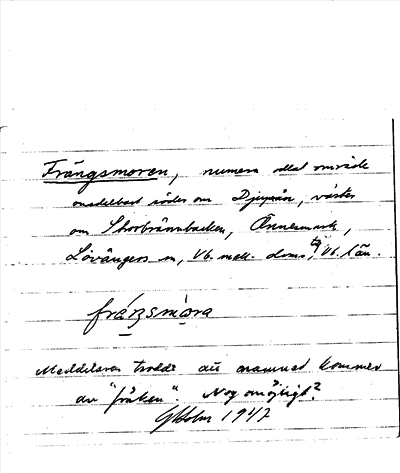 Frängsmoren, numera odlat område
omedelbart söder om Djupån, väster
om Storbrännbacken, Önnesmark,
Lövångers sn, Vb. mell. doms. tg, Vb. län.
fráŋsmòra
Meddelaren trodde att namnet kommer
av "fräken". Nog omöjligt?
GHolm 1947